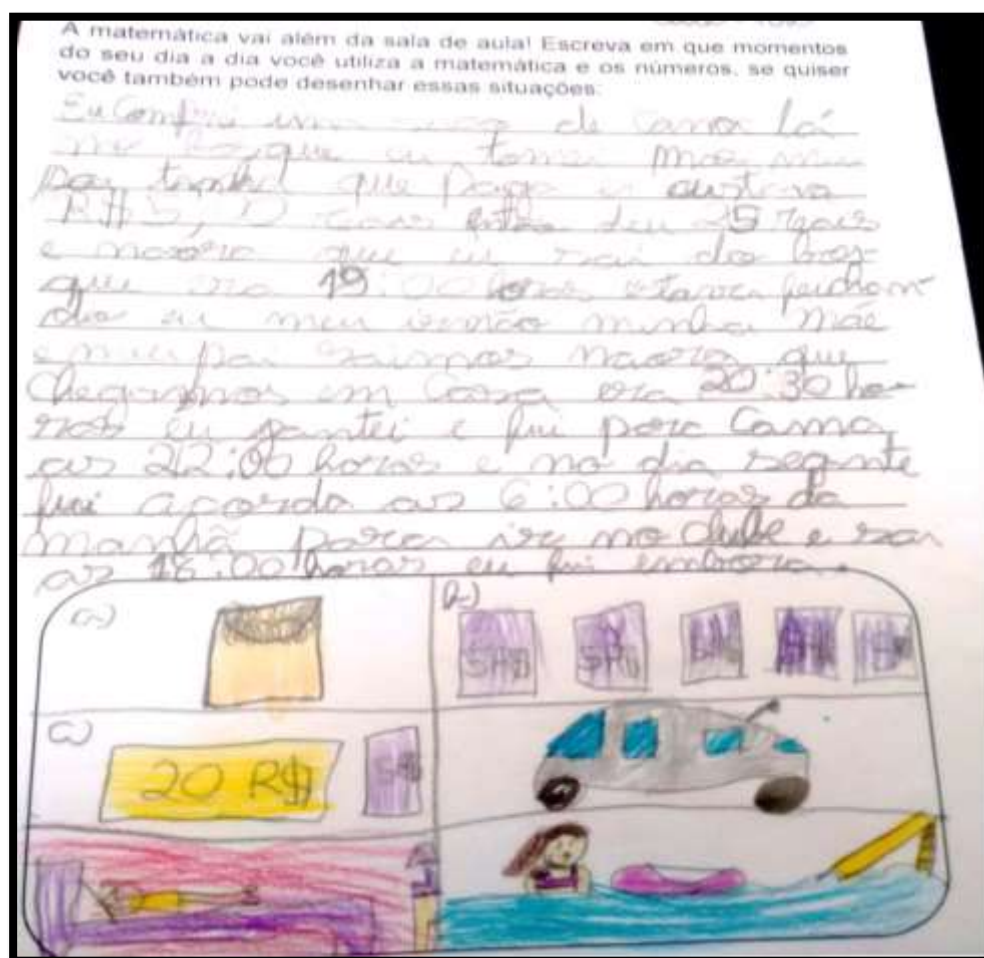 A matemática vai além da sala de aula! Escreva em que momentos
do seu dia a dia você utiliza a matemática e os números, se quiser
você também pode desenhar essas situações:
Eu comprei de cana lá
no bosque eu tomei mas meu
pai que paga
R$5, então deu 25 reais
e naora que eu sai do bos-
que era 19:00 horas estava fechan-
do eu meu irmão minha mãe
e meu pai saimos naora que
chegamos em casa era 20:30 ho-
ras eu jantei e fui para cama
as 22:00 horas e no dia seguinte
fui acorda as 6:00 horas da
manhã para ir no clube e
as 16:00 horas eu fui embora.
a)
b)
5R$ 5R$
c)
20 R$